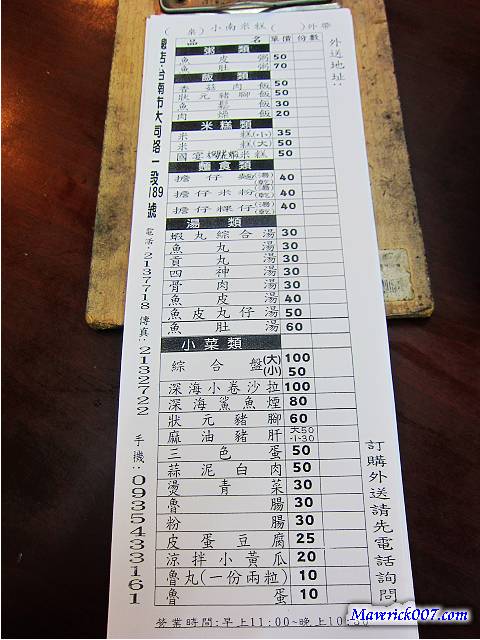 ( 桌) 小南米糕 ( )外帶
品 名 單價 份數
粥類
魚皮粥 50
魚肚粥 70
飯類
香菇肉飯 50
狀元豬腳飯 50
魚鬆飯 30
肉燥飯 20
米糕類
米糕(小) 35
米糕(大) 50
國宴 米糕 50
麵食類
擔仔麵(湯)(乾) 40
擔仔米粉(湯)(乾) 40
擔仔粿仔(湯)(乾) 40
湯類
蝦丸綜合湯 30
魚丸湯 30
貢丸湯 30
四神湯 30
骨肉湯 30
魚皮湯 40
魚皮丸仔湯 50
魚肚湯 60
小菜類
綜合盤(大) 100
(小) 50
深海小卷沙拉 100
深海鯊魚煙 80
狀元豬腳 60
麻油豬肝 大50 小30
三色蛋 50
蒜泥白肉 50
燙青菜 30
魯腸 30
粉腸 30
皮蛋豆腐 25
涼拌小黃瓜 20
魯丸(一份兩粒) 10
魯蛋 10
營業時間:早上11:00~晚上10:30
外送地址:
訂購外送請先電話詢問
店:台南市大同路一段189號
電話:2137718 傳真:2132722
手機:0935433161
Maverick007.com